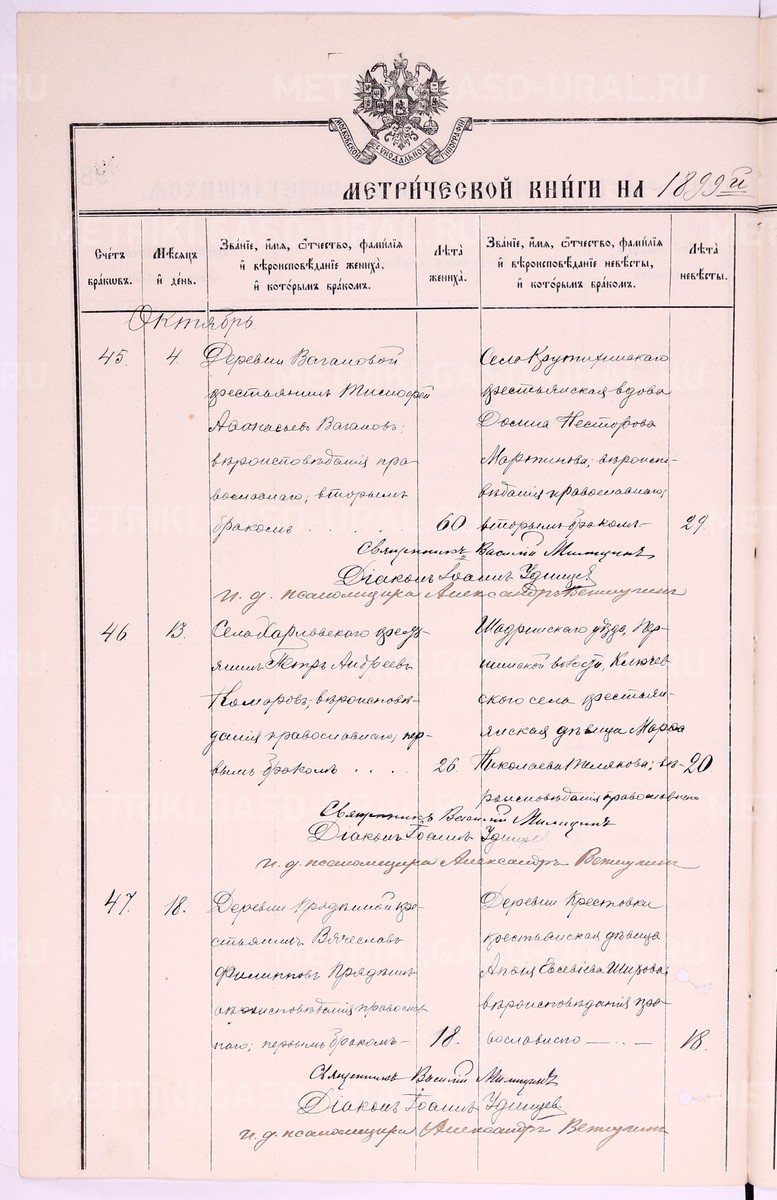 МОСКОВСКОЙ СѴНОДАЛЬНОЙ ТИПОГРАФІИ
МЕТРИ́ЧЕСКОЙ КНИ́ГИ НА 1899й
Сче́тъ бра́кωвъ.
Мѣ́сяцъ и҆ де́нь.
Зва́ніе, и҆́мя, ѻ҆́тчество, фами́лія и҆ вѣроисповѣ́даніе жениха̀, и҆ кото́рымъ бра́комъ.
Лѣ́та жениха̀.
Зва́ніе, и҆́мя, ѻ҆́тчество, фами́лія и҆ вѣроисповѣ́даніе невѣ́сты, и҆ кото́рымъ бра́комъ.
Лѣ́та невѣ́сты.
Октябрь
45. 4. Деревни Вагановой
крестьянинъ Тимофей
Аѳанасьевъ Вагановъ;
вѣроисповѣданія пра-
вославнаго; вторымъ
бракомъ . . . . 60
Село Крутихинскаго
крестьянская вдова
Домна Несторова
Мартинова; вѣроиспо-
вѣданія православнаго;
вторымъ бракомъ— 29
Священникъ Василій Милицинъ
Діаконъ Іоаннъ Удинцев
И. д. псаломщика Александръ Ветлугинъ
46 13. Села Харловскаго кресть-
янинъ Петръ Андреевъ
Комаровъ; вѣроисповѣ-
данія православнаго; пер-
вымъ бракомъ . . . . 26.
Шадринскаго уѣзда,
волости, Ключев-
скаго села крестья-
нская дѣвица Марѳа
Николаева; вѣ- 20
роисповѣданія православнаго
Священникъ Василій Милицинъ
Діаконъ Іоаннъ Удинце
И. д. псаломщика Александръ Ветлугинъ
47. 18. Деревни Прядѣиной кре-
стьянинъ Вячеславъ
Филипповъ Прядѣинъ
вѣроисповѣданія православ-
наго; первымъ бракомъ— 18.
Деревни Крестовки
крестьянская дѣвица
Евсевіева Ширкова;
вѣроисповѣданія пра-
вославнаго — . . — 18.
Священникъ Василій Милицинъ
Діаконъ Іоаннъ Удинцев
И. д. псаломщика Александръ Ветлугинъ